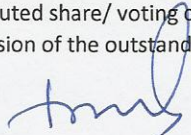 uted share/ voting
sion of the outstand